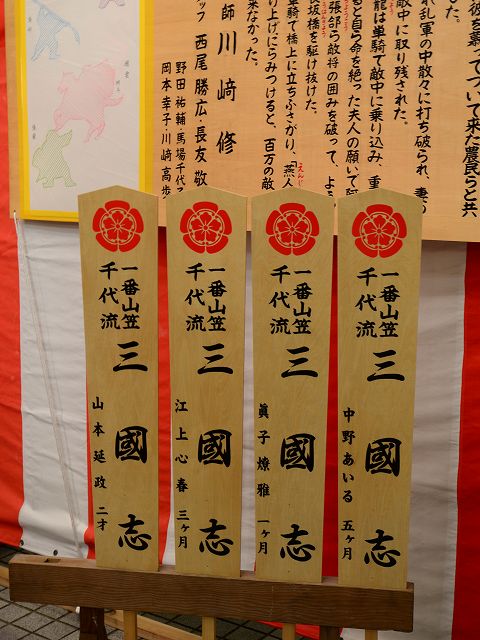 彼を慕ってついて来た農民らと共
れ乱軍の中散々に打ち破られ、妻の
敵中に取り残された。
龍は単騎で敵中に乗り込み、重
ると自ら命を絶った夫人の願いで阿
張郃ら敵将の囲みを破って、よう
長坂橋を駆け抜けた。
単騎で橋上に立ちふさがり、「燕人
り上げにらみつけると、百万の敵
来なかった。
師 川﨑 修
ッフ 西尾勝広・長友 敬
野田祐輔・馬場千代子
岡本幸子・川﨑高歩
一番山笠
千代流
三國志
中野あいる 五ヶ月
一番山笠
千代流
三國志
眞子燎雅 一ヶ月
一番山笠
千代流
三國志
江上心春 三ヶ月
一番山笠
千代流
三國志
山本延政 二才